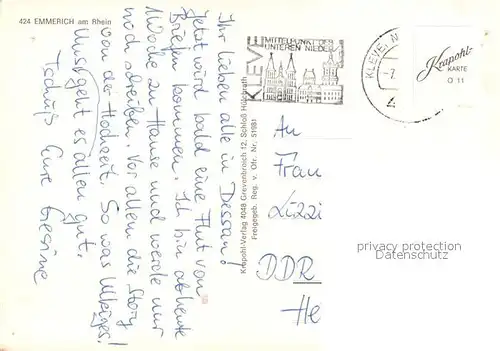 424 EMMERICH am Rhein
Ihr lieben alle in Dessau!
Jetzt wird bald eine Flut von
Briefen kommen. Ich bin ab heute
1 Woche zu Hause und werde nur
noch schreiben. Vor allem die Story
von der Hochzeit. So was Ulkiges!
Uns geht es allen gut.
Tschüß Eure Gesine
Krapohl-Verlag 4048 Grevenbroich 12, Schloß Hülchrath
Freigegeb. Reg. v. Obr. Nr. 51981
KLEVE
MITTELPUNKT DES
UNTEREN NIEDER
KLEVE
4
Krapohl-
KARTE
O 11
An
Frau
Lizzi
DDR
He
privacy protection
Datenschutz